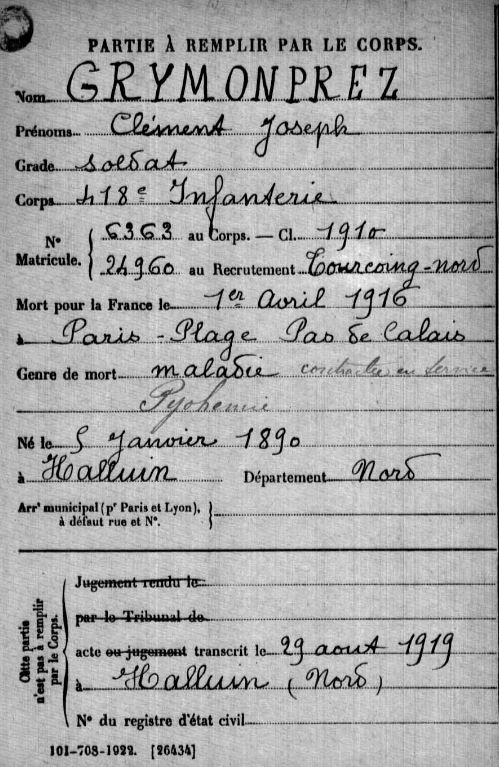 PARTIE À REMPLIR PAR LE CORPS.
Nom GRYMONPREZ
Prénoms Clément Joseph
Grade soldat
Corps 418e Infanterie
N° Matricule. { 6363 au Corps. — Cl. 1910
24960 au Recrutement Tourcoing-nord
Mort pour la France le 1er Avril 1916
à Paris-Plage Pas de Calais
Genre de mort maladie contractée en service
Pyohemie
Né le 5 Janvier 1890
à Halluin Département Nord
Arrt municipal (pr Paris et Lyon), }
à défaut rue et N°.
Cette partie n'est pas à remplir par le Corps.
Jugement rendu le
par le Tribunal de
acte ou jugement transcrit le 29 aout 1919
à Halluin (Nord)
N° du registre d'état civil
101-708-1922. [26434]